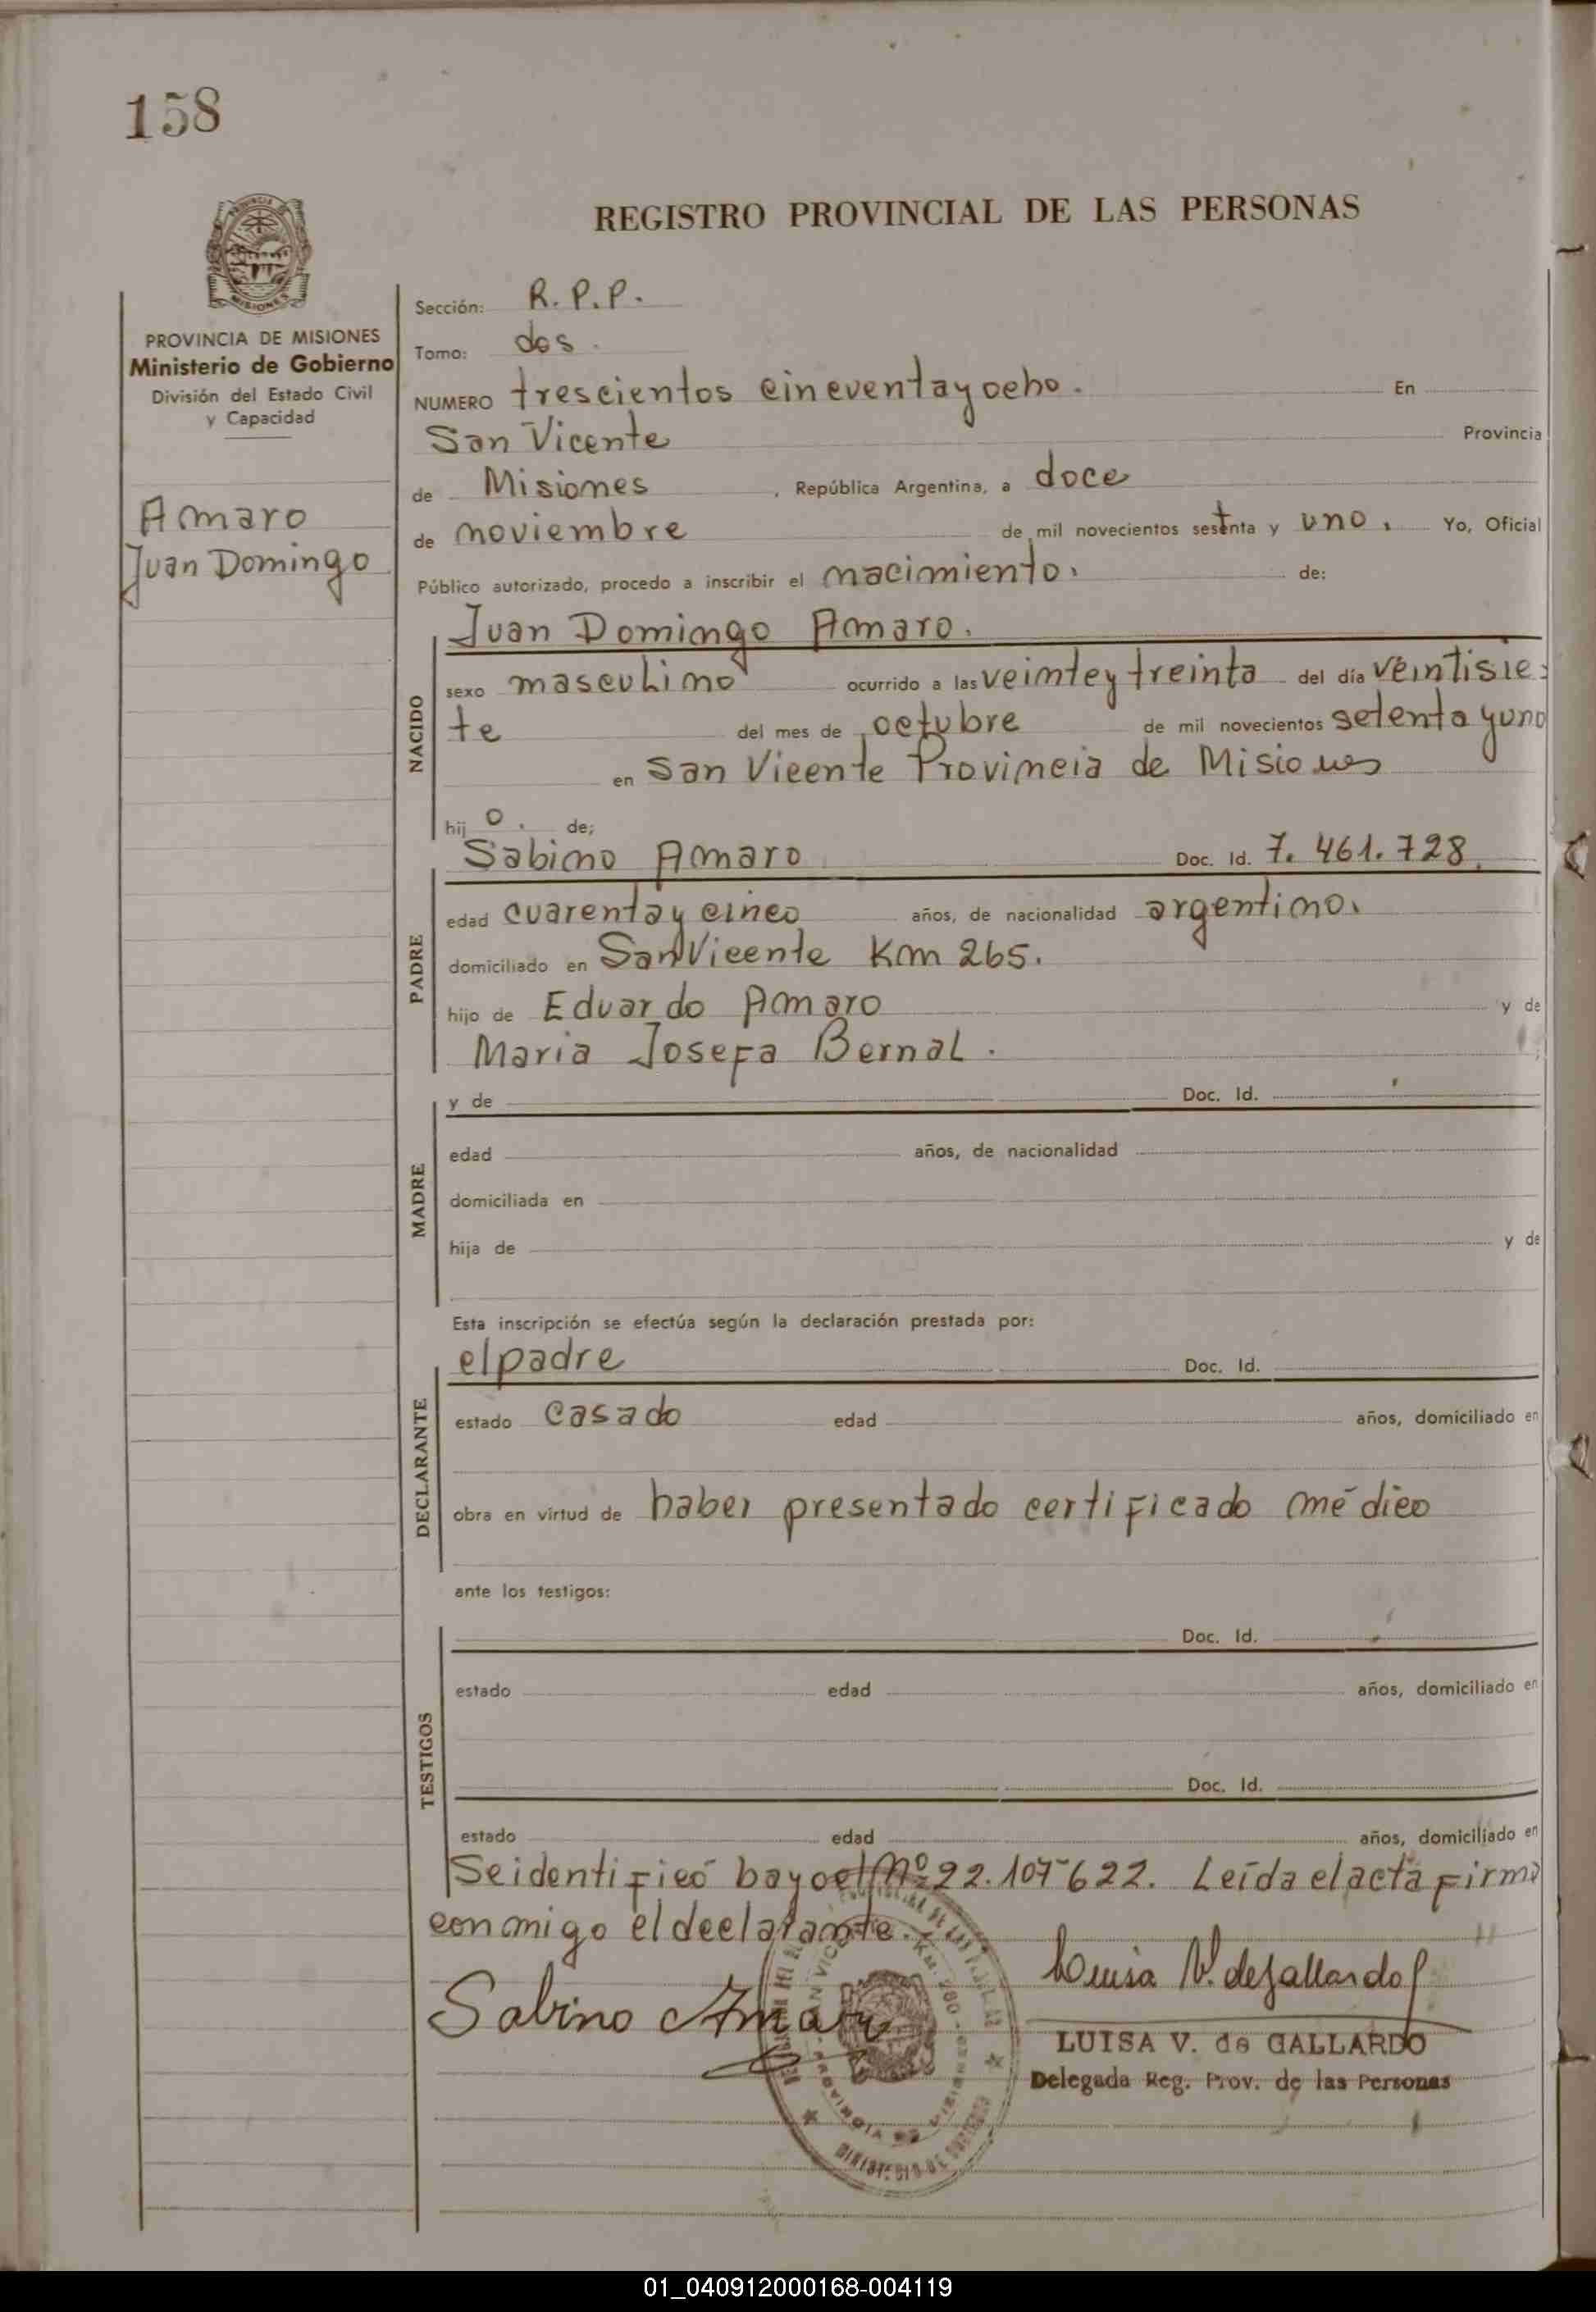 158
REGISTRO PROVINCIAL DE LAS PERSONAS
PROVINCIA DE MISIONES
Ministerio de Gobierno
División del Estado Civil
y Capacidad
Amaro
Juan Domingo
Sección: R.P.P.
Tomo: dos.
NUMERO trescientos cincuenta y ocho. En
San Vicente Provincia
de Misiones, República Argentina, a doce
de noviembre de mil novecientos setenta y uno. Yo, Oficial
Público autorizado, procedo a inscribir el nacimiento. de:
NACIDO
Juan Domingo Amaro.
sexo masculino ocurrido a las veinte y treinta del día veintisie-
te del mes de octubre de mil novecientos setenta y uno
en San Vicente Provincia de Misiones
hij o. de;
PADRE
Sabino Amaro Doc. Id. 7.461.728.
edad cuarenta y cinco años, de nacionalidad argentino.
domiciliado en San Vicente Km 265.
hijo de Eduardo Amaro y de
Maria Josefa Bernal.
MADRE
y de Doc. Id.
edad años, de nacionalidad
domiciliada en
hija de y de
Esta inscripción se efectúa según la declaración prestada por:
DECLARANTE
el padre Doc. Id.
estado casado edad años, domiciliado en
obra en virtud de haber presentado certificado médico
ante los testigos:
TESTIGOS
Doc. Id.
estado edad años, domiciliado en
Doc. Id.
estado edad años, domiciliado en
Se identificó bayo el Nº 22.107622. Leída el acta firma
conmigo el declarante.
Sabino Amaro
Luisa V. de Gallardo
LUISA V. de GALLARDO
Delegada Reg. Prov. de las Personas
01_040912000168-004119